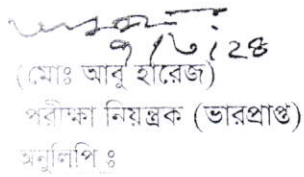 (মোঃ আবু হারেজ)
পরীক্ষা নিয়ন্ত্রক (ভারপ্রাপ্ত)
অনুলিপি ঃ